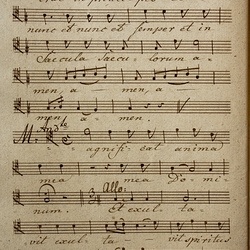 nunc et nunc et semper et in
Saecula saecu - lorum a -
men, a - men, a
men a - men.
And.te
M. - agnifi - cat anima
mea mea Do - mi -
All.o
num. Et exul - ta -
vit exul - ta - vit spiritus